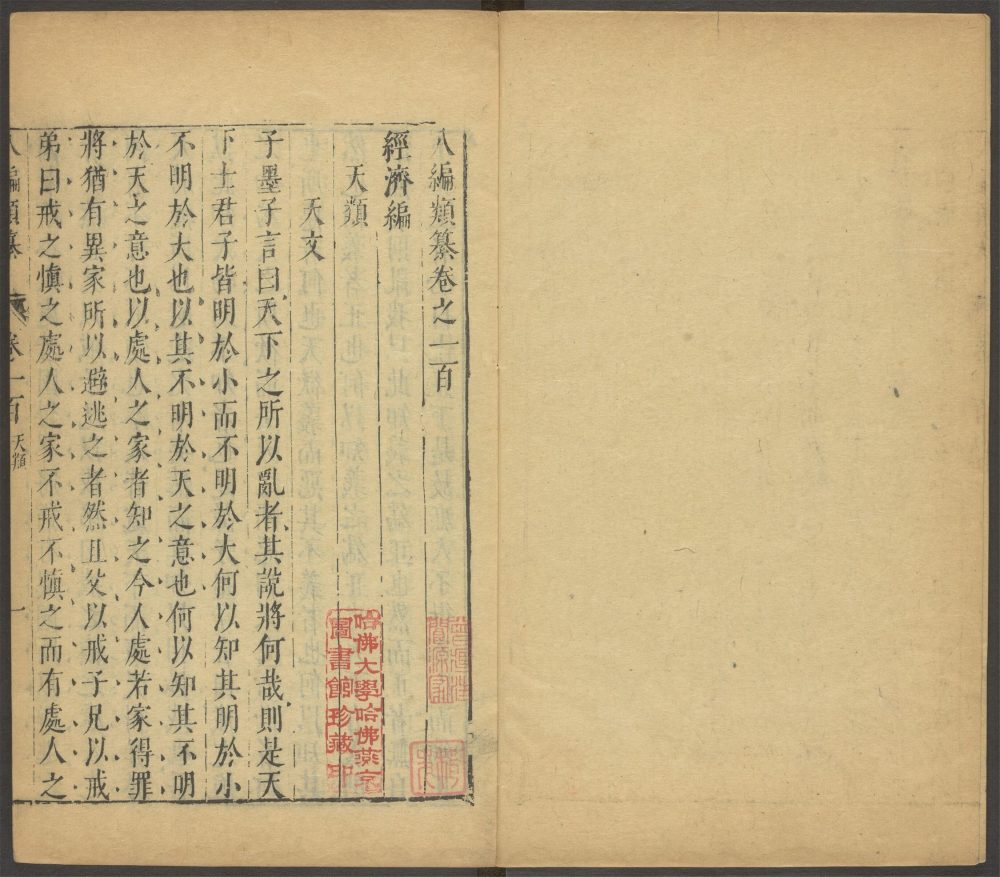 八編類纂卷之一百
經濟編
天類
天文
子墨子言曰天下之所以亂者其說將何哉則是天
下士君子皆明於小而不明於大何以知其明於小
不明於大也以其不明於天之意也何以知其不明
於天之意也以處人之家者知之今人處若家得罪
將猶有異家所以避逃之者然且父以戒子兄以戒
弟曰戒之慎之處人之家不戒不慎之而有處人之
八編類纂 卷一百 天類 一
哈佛大學哈佛燕京
圖書館珍藏印